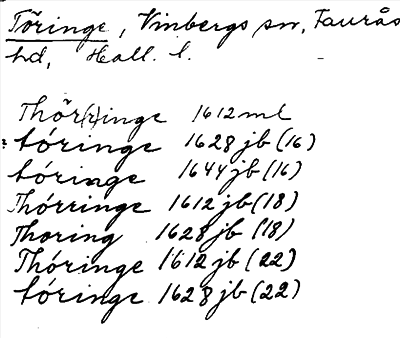 Töringe, Vinbergs sn, Faurås
hd, Hall. l.
Thör(r)inge 1612 ml
tóringe 1628 jb (16)
tóringe 1644 jb (16)
Thórringe 1612 jb (18)
Thoring 1628 jb (18)
Thóringe 1612 jb (22)
tóringe 1628 jb (22)